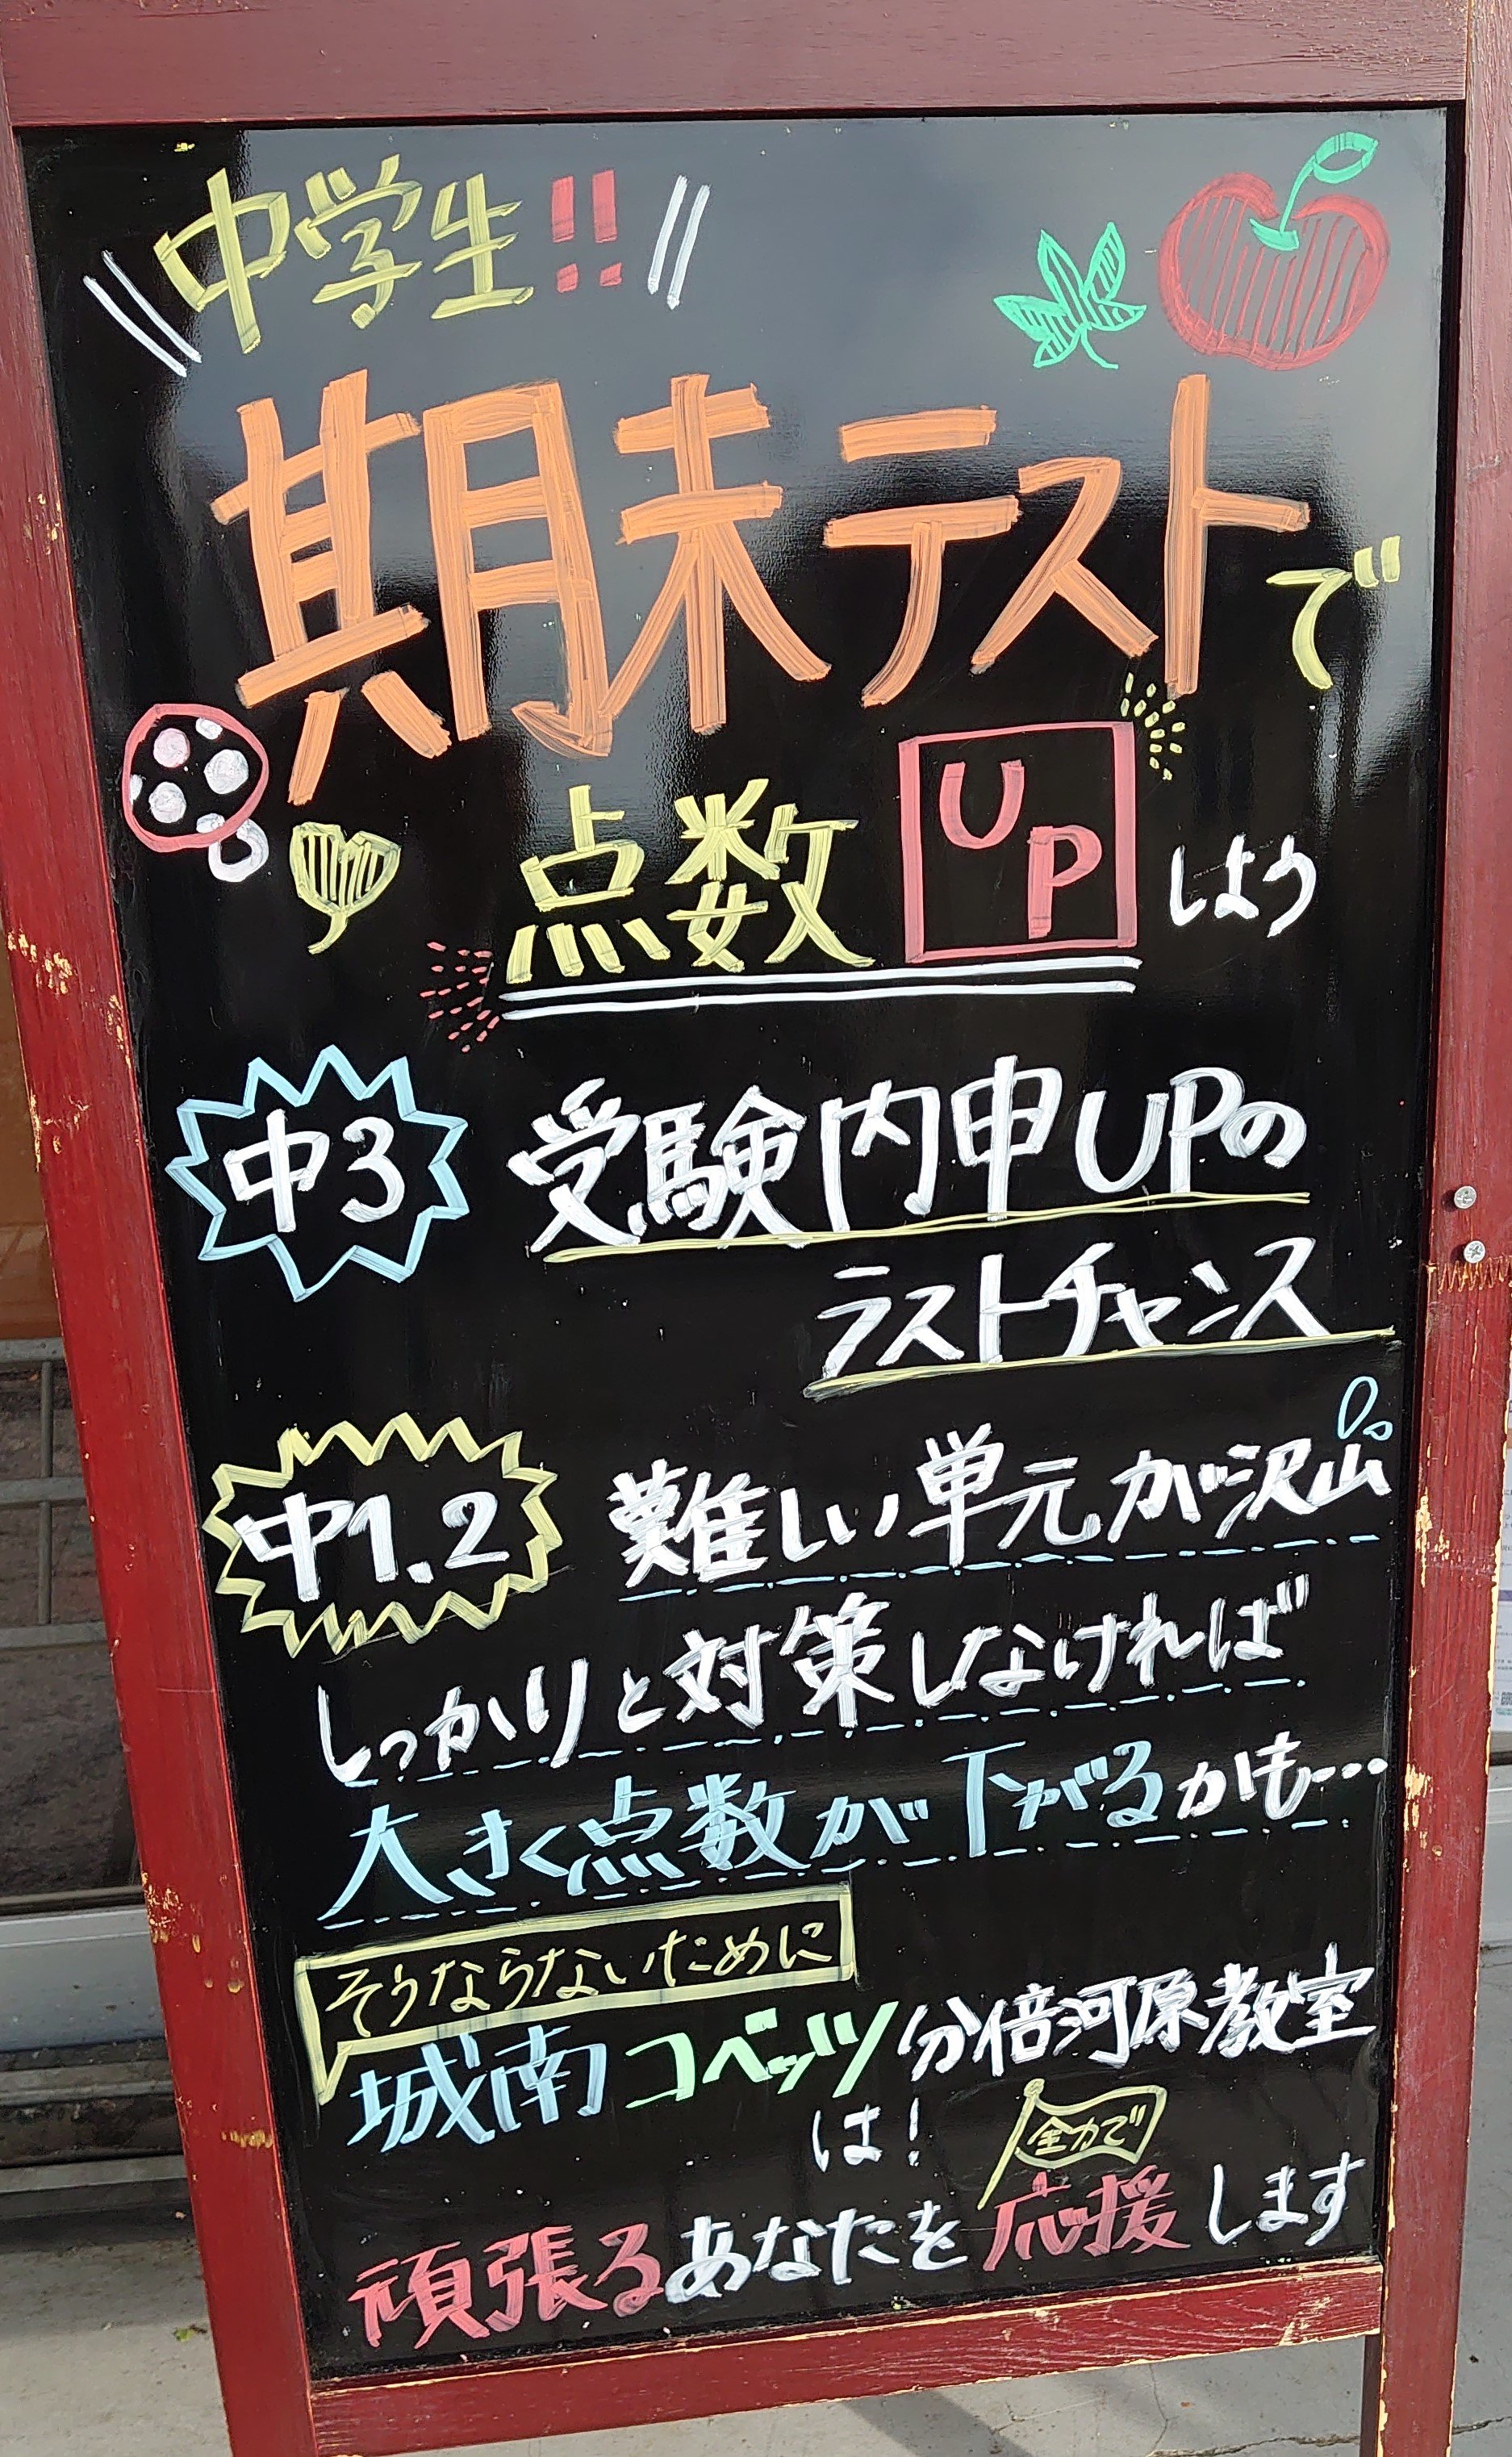 中学生!!
期末テストで
点数UPしよう
中3 受験内申UPの
ラストチャンス
中1.2 難しい単元が沢山
しっかりと対策しなければ
大きく点数が下がるかも…
そうならないために
城南コベッツ分倍河原教室
は!
全力で
頑張るあなたを応援します